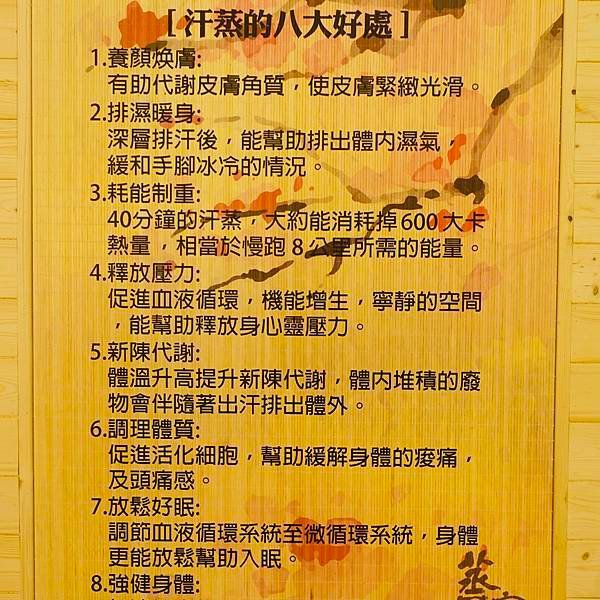 [ 汗蒸的八大好處 ]
1.養顏煥膚:
有助代謝皮膚角質，使皮膚緊緻光滑。
2.排濕暖身:
深層排汗後，能幫助排出體內濕氣，
緩和手腳冰冷的情況。
3.耗能制重:
40分鐘的汗蒸，大約能消耗掉600大卡
熱量，相當於慢跑8公里所需的能量。
4.釋放壓力:
促進血液循環，機能增生，寧靜的空間
，能幫助釋放身心靈壓力。
5.新陳代謝:
體溫升高提升新陳代謝，體內堆積的廢
物會伴隨著出汗排出體外。
6.調理體質:
促進活化細胞，幫助緩解身體的痠痛，
及頭痛感。
7.放鬆好眠:
調節血液循環系統至微循環系統，身體
更能放鬆幫助入眠。
8.強健身體:
蒸